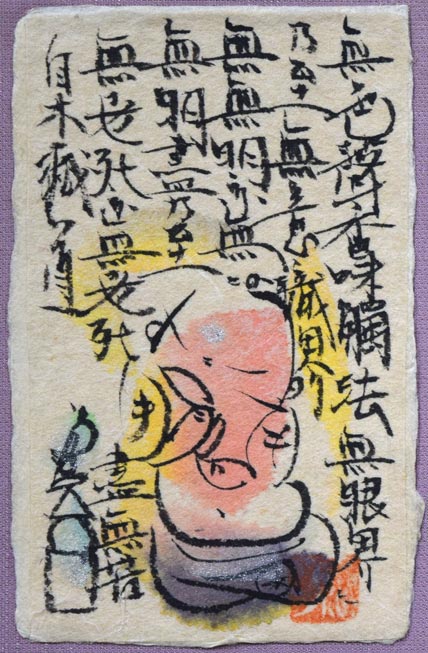 無色聲香味觸法無眼界
乃至無意識界
無無明亦無
無明盡乃至
無老死亦無老死
盡無苦
集滅道